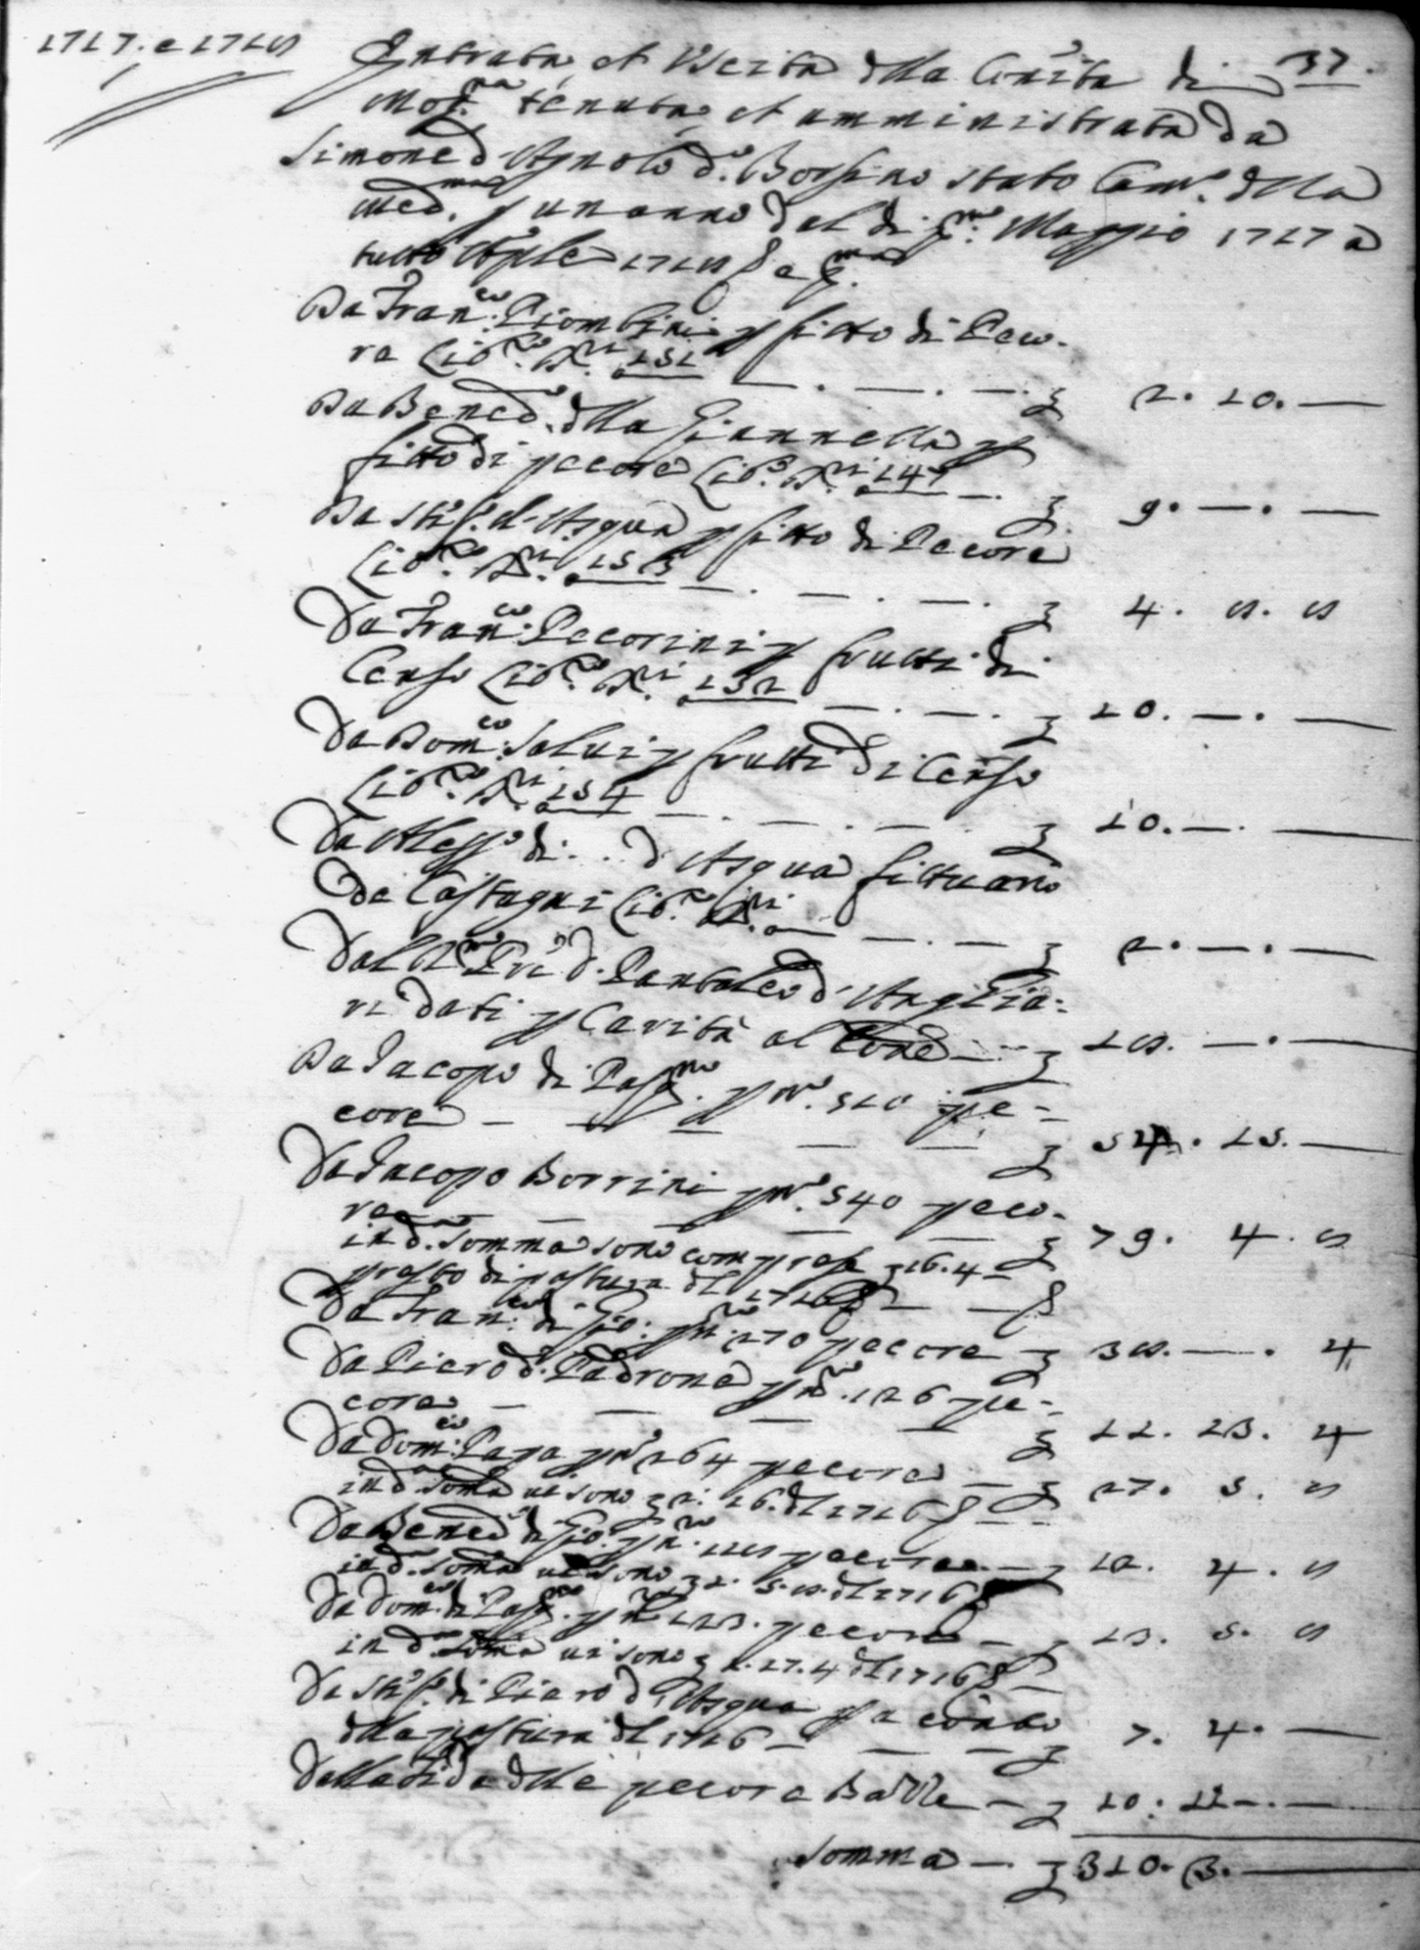 1717. e 1718
37.
Entrata et Uscita della Com.tà di
tenuta et amministrata da
Simone d'Agnolo d. Borsino stato Cam.o della
med.ma p un anno dal di p.mo Maggio 1717 a
tutto Aple 1718 e p.ma
Da Fran.co Piombini p fitto di Peco-
re Lib.ro 151 2. 10. —
Da Bened.o della Giannella p
fitto di pecore Lib.o 147 9. —. —
Da Stef.o d'Asqua p fitto di Pecore
Lib.ro 153 4. 8. 8
Da Fran.co Pecorini p frutti di
Censo Lib.ro 152 10. —. —
Da Dom.co Salvi p frutti di Censo
Lib.ro 154 10. —. —
Da Aless.o di... d'Asqua fittuario
de Castagni Lib.ro 2. —. —
Dal Pantaleo d'Anghia:
ri dati p Carità al 18. —. —
Da Jacopo di Pasq.no p n.o 310 pe-
core 54. 15. —
Da Jacopo Borrini p n.o 540 peco-
re 79. 4. 8
in d.a Somma sono comprese 16. 4
p resto di pastura del 1716
Da Fran.co di Gio: p n.o 270 pecore 38. —. 4
Da Piero d. Padrone p n.o 126 pe-
core 11. 13. 4
Da Dom.co Papa p n.o 264 pecore 27. 5. 8
in d.a Soma vi sono 2. 16. del 1716
Da Bened.o di Gio. p n.o 118 pecore 12. 4. 8
in d.a Soma vi sono 1. 5. 8. del 1716
Da Dom.co di Pasq.no p n.o 123. pecore 13. 5. 8
in d.a Soma vi sono 1. 17. 4 del 1716
Da Stef.o di Piero d'Asqua p a conto
della pastura del 1716 7. 4. —
Dalla Fida delle pecore 10. 12. —
Somma 310. 13. —